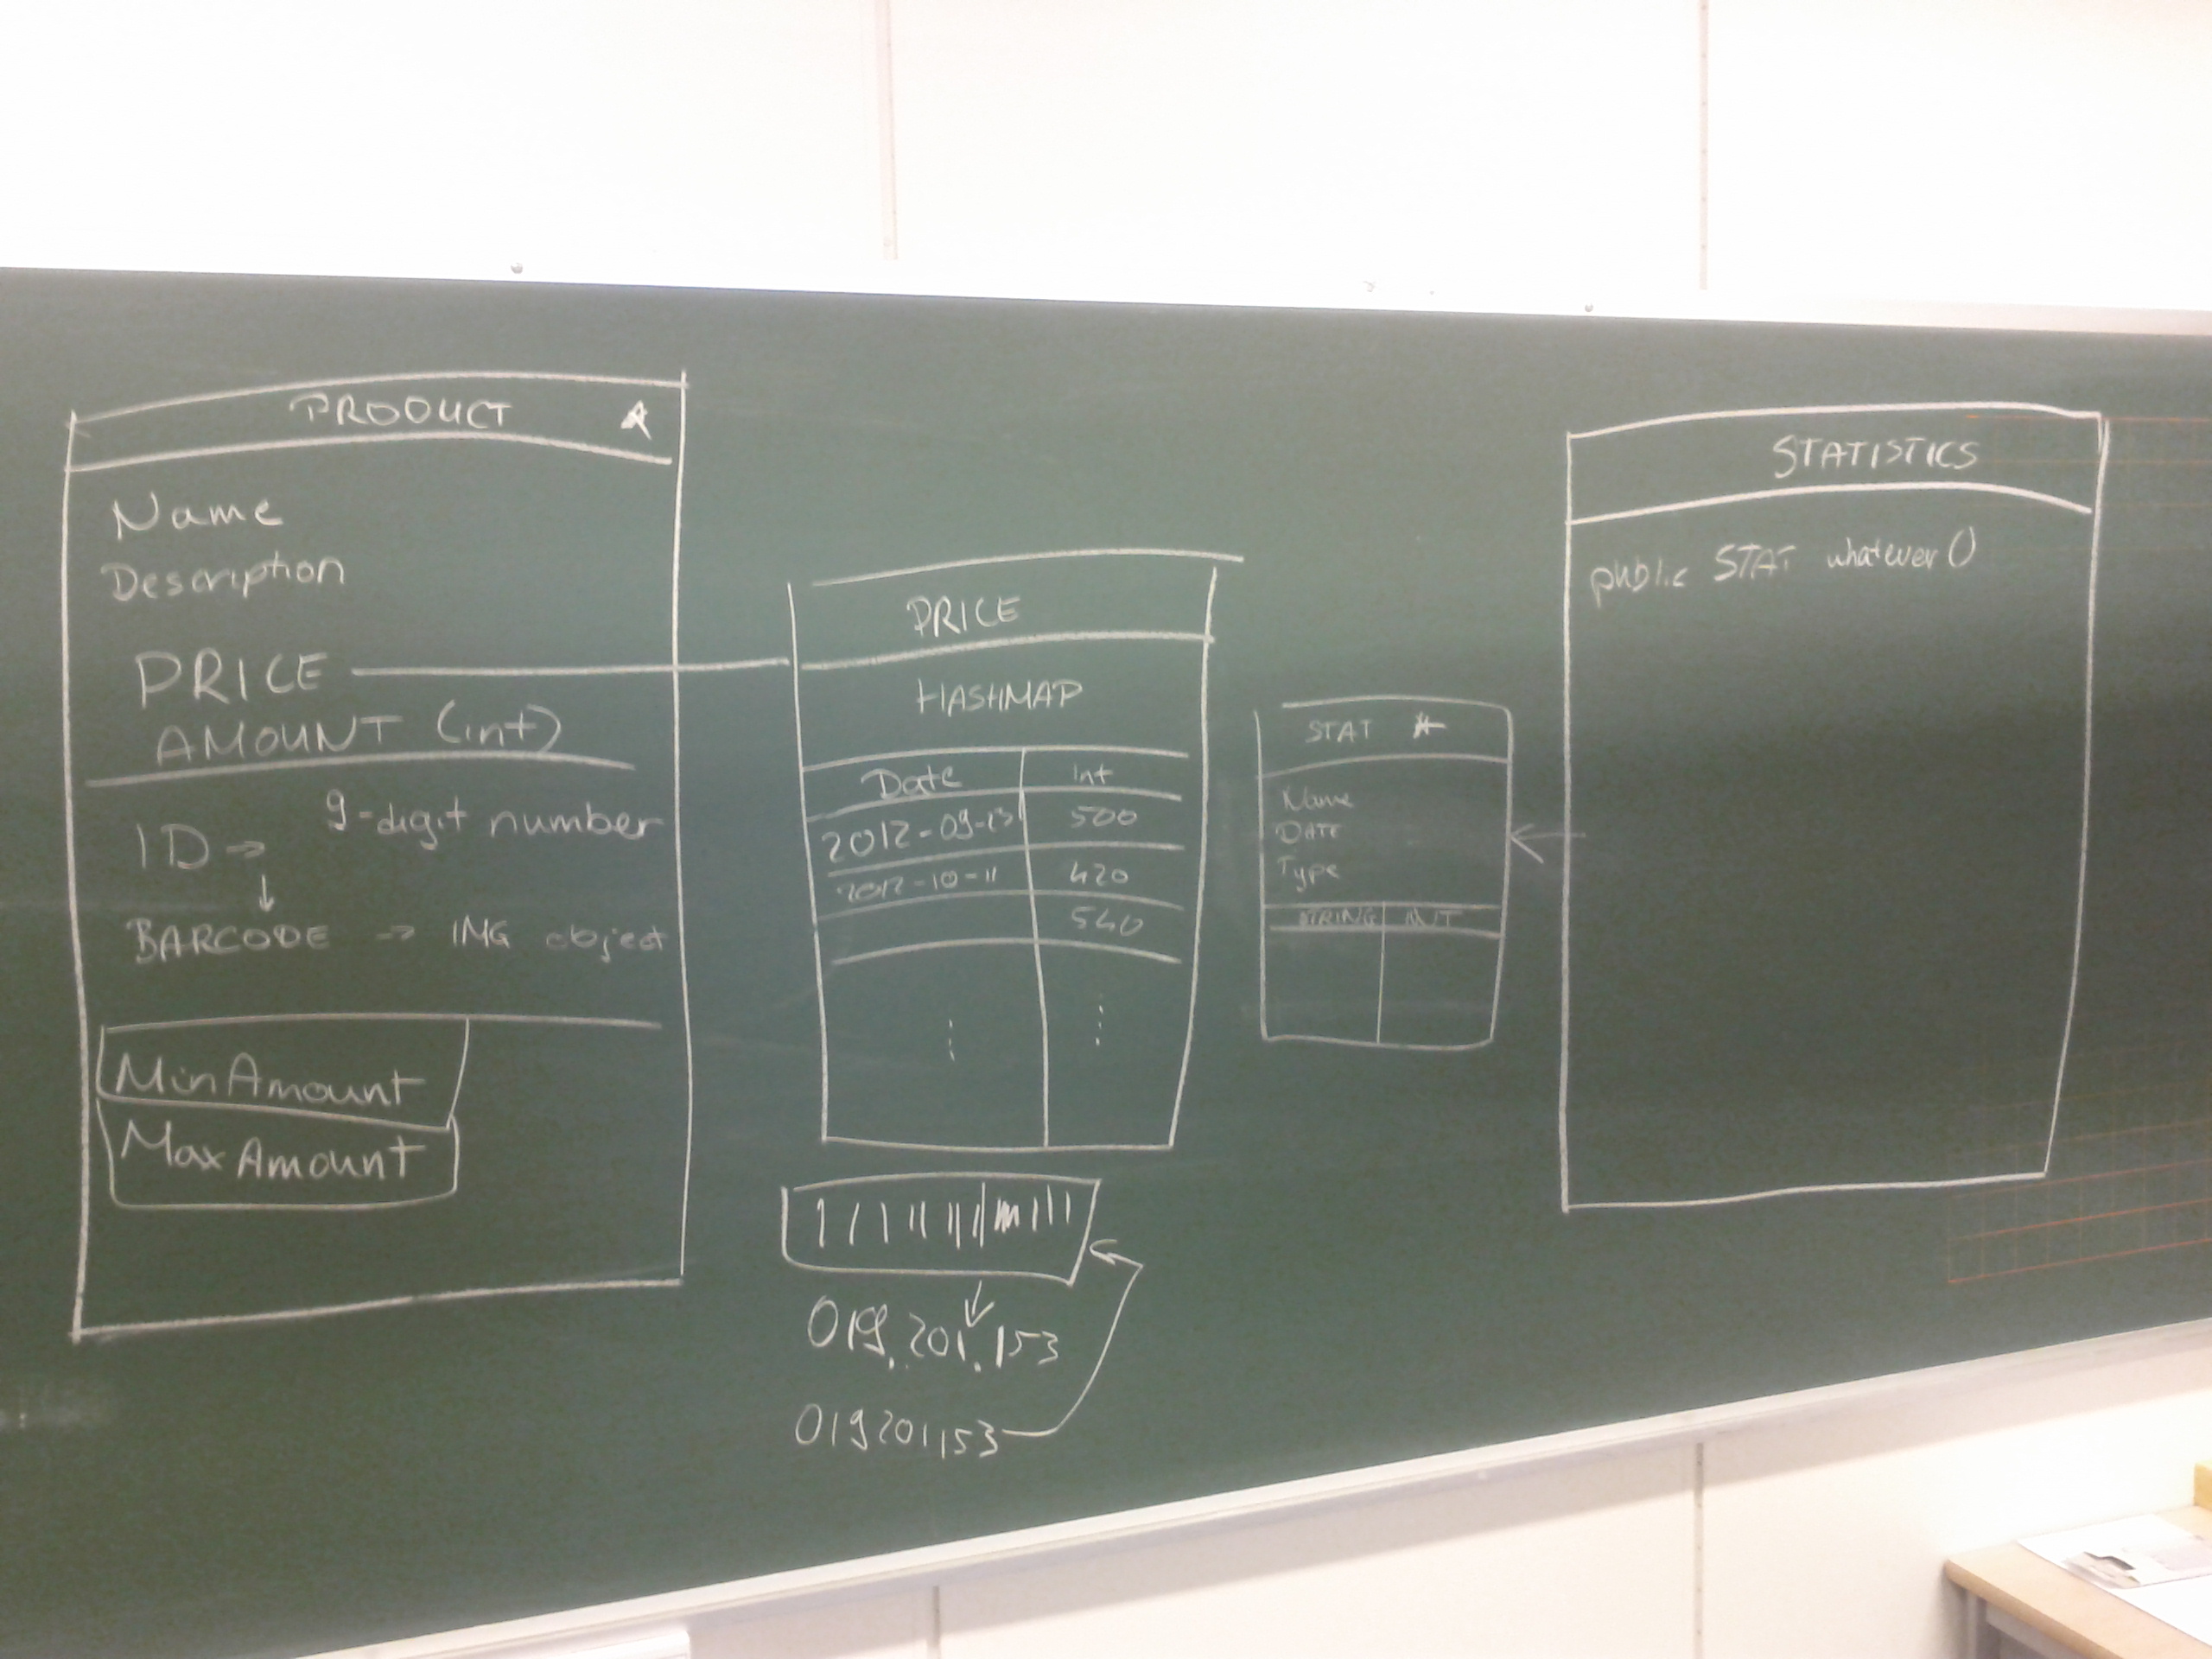 PRODUCT
Name
Description
PRICE
AMOUNT (int)
9-digit number
ID →
↓
BARCODE → IMG object
MinAmount
MaxAmount
PRICE
HASHMAP
Date Int
2012-09-13 500
2012-10-11 420
540
019.201.153
019201153
STAT
Name
DATE
Type
STRING INT
STATISTICS
public STAT whatever()